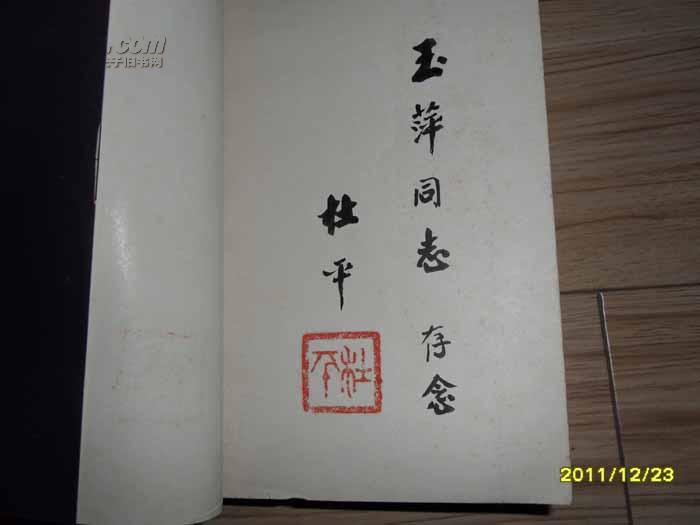 玉萍同志 存念
杜平
杜平
.com
夫子旧书网
2011/12/23